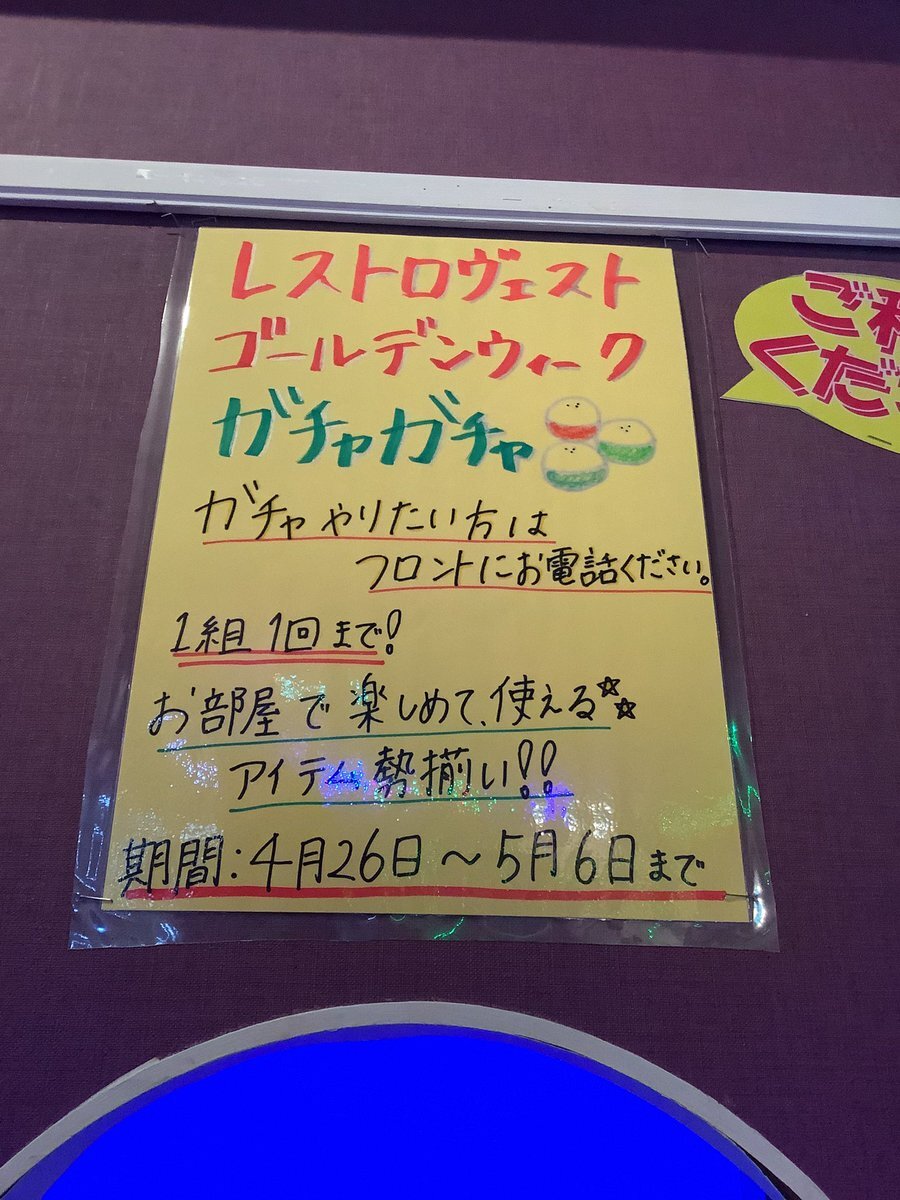 レストロヴェスト
ゴールデンウィーク
ガチャガチャ
ガチャやりたい方は
フロントにお電話ください。
1組1回まで!
お部屋で楽しめて、使える☆☆
アイテム勢揃い!!
期間:4月26日〜5月6日まで
ご利
くださ